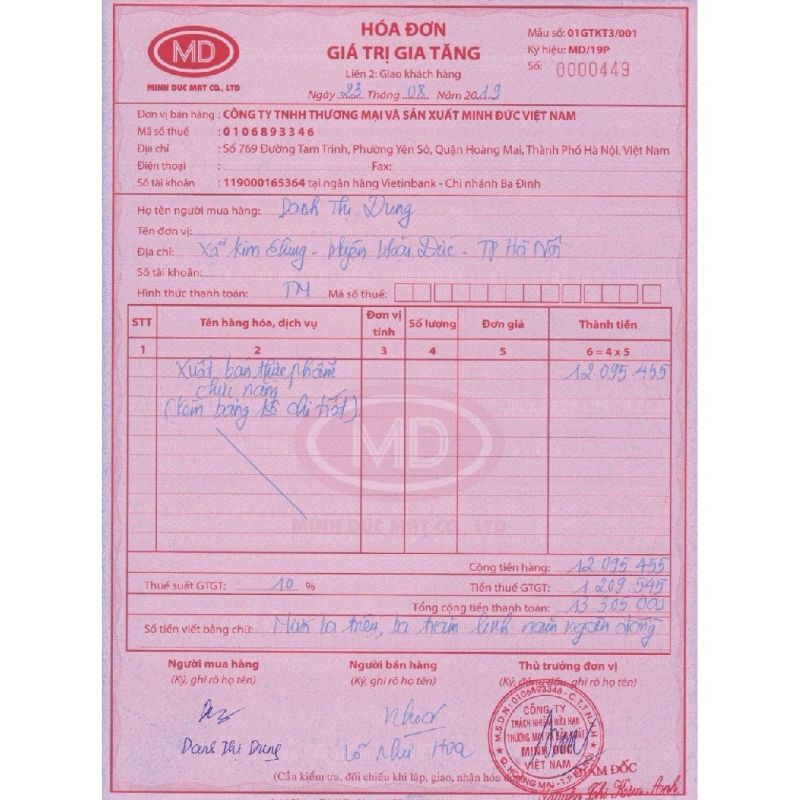 MD
MINH DUC MAT CO., LTD
HÓA ĐƠN
GIÁ TRỊ GIA TĂNG
Liên 2: Giao khách hàng
Ngày 23 Tháng 08 Năm 2019
Mẫu số: 01GTKT3/001
Ký hiệu: MD/19P
Số: 0000449
Đơn vị bán hàng : CÔNG TY TNHH THƯƠNG MẠI VÀ SẢN XUẤT MINH ĐỨC VIỆT NAM
Mã số thuế : 0106893346
Địa chỉ : Số 769 Đường Tam Trinh, Phường Yên Sở, Quận Hoàng Mai, Thành Phố Hà Nội, Việt Nam
Điện thoại : Fax:
Số tài khoản : 119000165364 tại ngân hàng Vietinbank - Chi nhánh Ba Đình
Họ tên người mua hàng: Danh Thị Dung
Tên đơn vị:
Địa chỉ: Xã Kim Chung - Huyện Hoài Đức - TP Hà Nội
Số tài khoản:
Hình thức thanh toán: TM Mã số thuế:
STT Tên hàng hóa, dịch vụ Đơn vị tính Số lượng Đơn giá Thành tiền
1 2 3 4 5 6 = 4 x 5
Xuất bán thực phẩm 12 095 455
chức năng
(kèm bảng kê chi tiết)
MD
MINH DUC MAT CO., LTD
Cộng tiền hàng: 12 095 455
Thuế suất GTGT: 10 % Tiền thuế GTGT: 1 209 545
Tổng cộng tiền thanh toán: 13 305 000
Số tiền viết bằng chữ: Mười ba triệu, ba trăm linh năm ngàn đồng
Người mua hàng Người bán hàng Thủ trưởng đơn vị
(Ký, ghi rõ họ tên) (Ký, ghi rõ họ tên) (Ký, đóng dấu, ghi rõ họ tên)
M.S.D.N: 0106893346 - C.T.T.N.H.H
CÔNG TY
TRÁCH NHIỆM HỮU HẠN
THƯƠNG MẠI VÀ SẢN XUẤT
MINH ĐỨC
VIỆT NAM
Q. HOÀNG MAI - T.P HÀ NỘI
Danh Thị Dung Như Hoa
GIÁM ĐỐC
(Cần kiểm tra, đối chiếu khi lập, giao, nhận hóa
Nguyễn Thị Anh